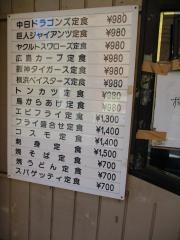 中日ドラゴンズ定食 ¥980
巨人ジャイアンツ定食 ¥980
ヤクルトスワローズ定食 ¥980
広島カープ定食 ¥980
阪神タイガース定食 ¥980
横浜ベイスターズ定食 ¥980
トンカツ定食 ¥980
鳥からあげ定食 ¥980
エビフライ定食 ¥1,300
フライ盛合せ定食 ¥1,400
コスモ定食 ¥1,400
刺身定食 ¥1,500
焼そば定食 ¥700
焼うどん定食 ¥700
スパゲッティ定食 ¥700